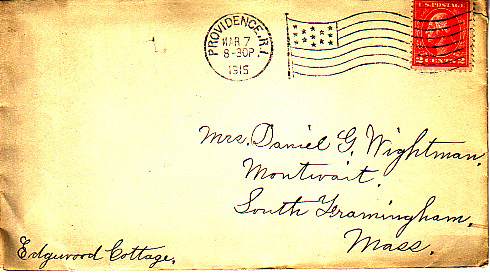 PROVIDENCE, R.I.
MAR 7
8-30P.
1915
U.S. POSTAGE
2 CENTS 2
Mrs. Daniel G. Wightman,
Montwait,
South Framingham,
Mass.
Edgewood Cottage,